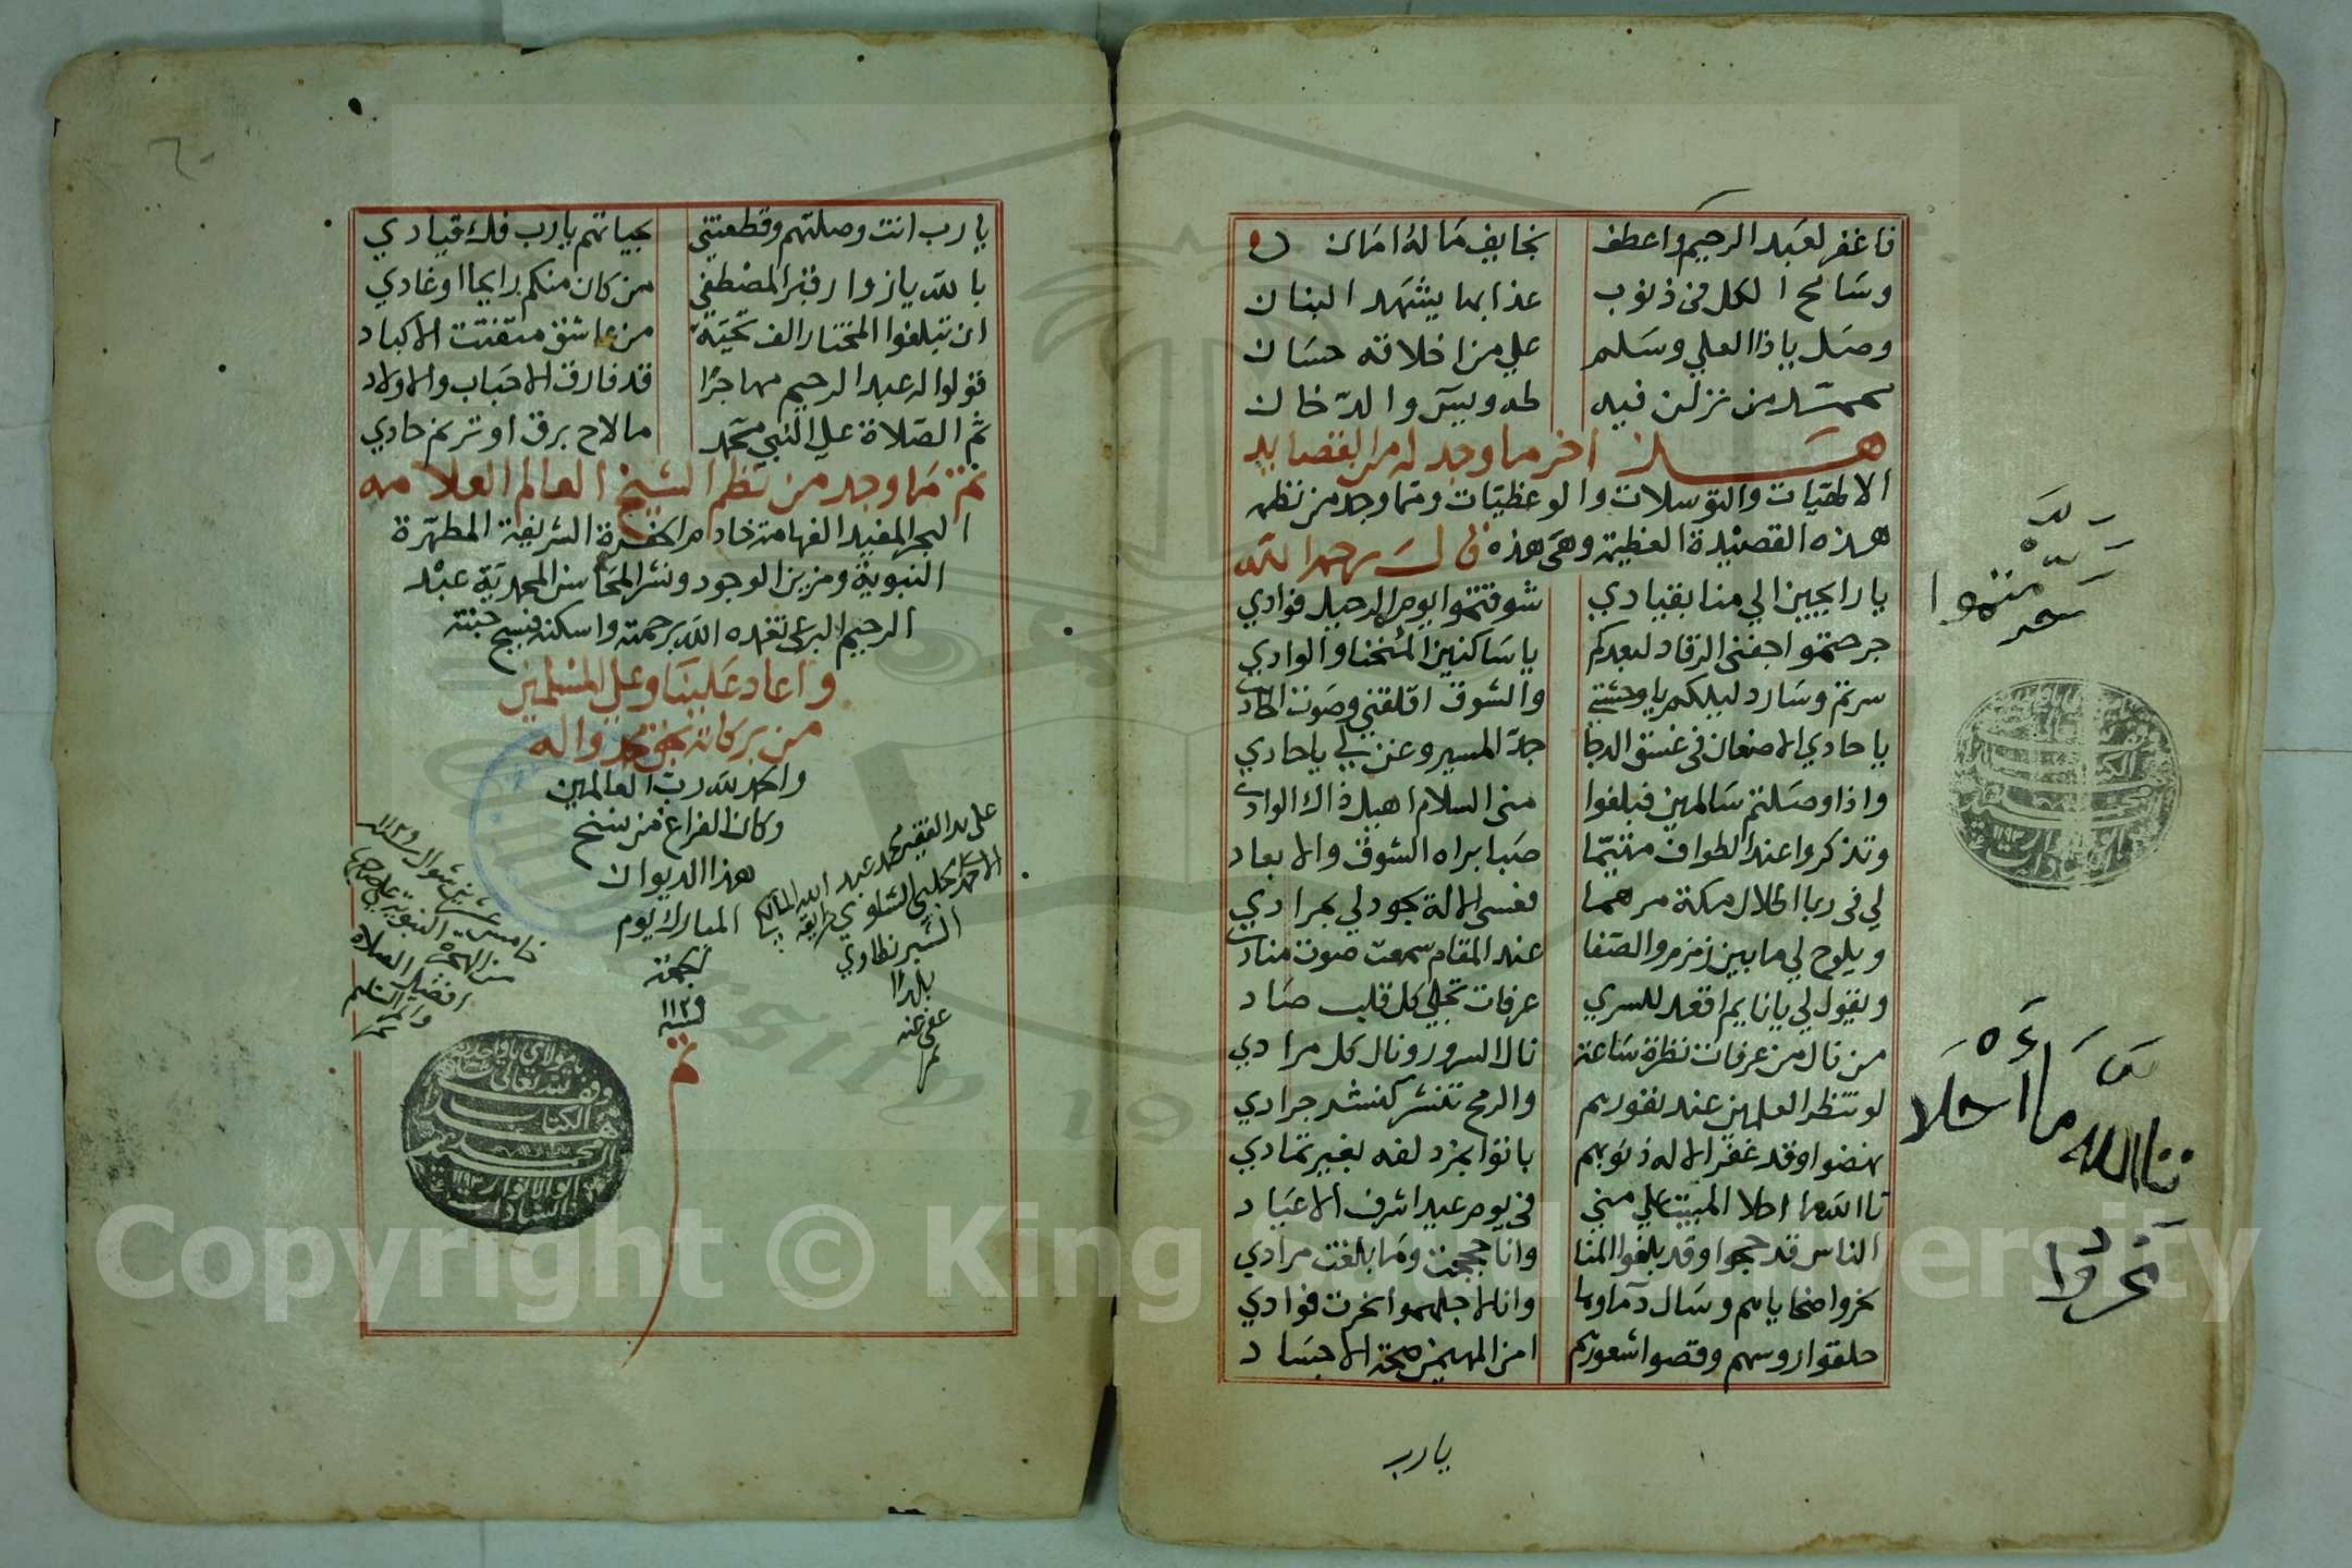 فاغفر لعبد الرحيم واعطف بخايف ماله امان
وسامح الكل في ذنوب عذابها يشهد البنان
وصل ياذا العلي وسلم علي من اخلاقه حسان
محمد من نزلن فيه طه ويس والدخان
هذا اخر ما وجد له من القصايد
الالهيات والتوسلات والوعظيات ومما وجد من نظمه
هذه القصيدة العظيمة وهي هذه قال رحمه الله
يا رايحين الي منا بقيادي شوقتموا يوم الرحيل فوادي
جرحتموا جفني الرقاد لبعدكم يا ساكنين المنحنا والوادي
سرتم وسار دليلكم يا وحشتي والشوق اقلقني وصوت الحادي
يا حادي الاضعان في غسق الدجا جد المسير وعن بي يا حادي
واذا وصلتم سالمين فبلغوا مني السلام اهيل ذاك الوادي
وتذكروا عند الطواف متيما صبا براه الشوق والابعاد
لي في ربا اطلال مكة مرهما فعسي الالة يجود لي بمرادي
ويلوح لي ما بين زمزم والصفا عند المقام سمعت صوت منادي
ويقول لي يا نايم اقعد للسري عرفات تجلي كل قلب صاد
من نال من عرفات نظرة ساعة نال السرور ونال كل مرادي
لو تنظر العلمين عند نفورهم والرمح تنشر كنشر جرادي
نهضوا وقد غفر الاله ذنوبهم باتوا بمزدلفه بغير تمادي
تا الله ما احلا المبيت علي مني في يوم عيد اشرف الاعياد
الناس قد حجوا وقد بلغوا المنا وانا حججت وما بلغت مرادي
نحروا ضحاياهم وسال دماوها وانا لاجلهموا نحرت فوادي
حلقوا روسهم وقصوا شعورهم امن المهيمن صحة الاجساد
يارب
منتموا
تاالله ما أحلا
نحروا
يا رب انت وصلتهم وقطعتني بحياتهم يا رب فك قيادي
بالله يا زوار قبر المصطفي من كان منكم رايحا اوغادي
ان تبلغوا المختار الف تحية من عاشق متفتت الاكباد
قولوا له عبد الرحيم مهاجرا قد فارق الاحباب والاولاد
ثم الصلاة علي النبي محمد ما لاح برق او ترنم حادي
تم ما وجد من نظم الشيخ العالم العلامه
البحر المفيد الفهامة خادم الحضرة الشريفة المطهرة
النبوية ومزين الوجود ونشر المحاسن المحمدية عبد
الرحيم البرعي تغمده الله برحمته واسكنه فسيح جنته
واعاد علينا وعلي المسلمين
من بركاته بجاه محمد واله
والحمد لله رب العالمين
وكان الفراغ من نسخ
هذا الديوان
المبارك يوم
الجمعة
تم
على يد الفقير محمد عبد الله المالكي
عفي عنه
من الهجرة النبوية على صاحبها
افضل الصلاة
والسلام
وقف لله تعالى
هذا الكتاب